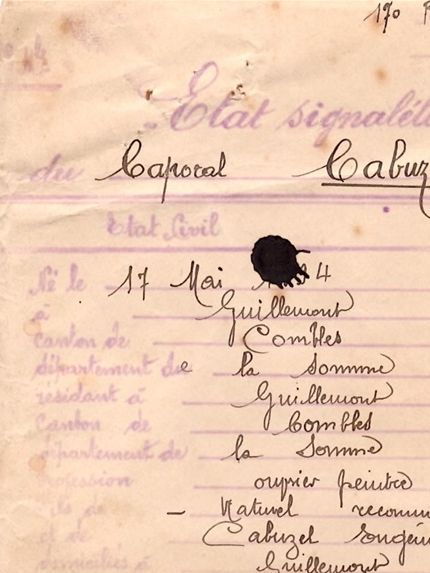 Etat signalét
du Caporal Cabuz
Etat Civil
Né le 17 Mai 4
à Guillemont
canton de Combles
département de la Somme
résidant à Guillemont
Canton de Combles
département de la Somme
profession ouvrier peintre
fils de - Naturel reconnu
et de Cabuzel
domiciliés à Guillemont